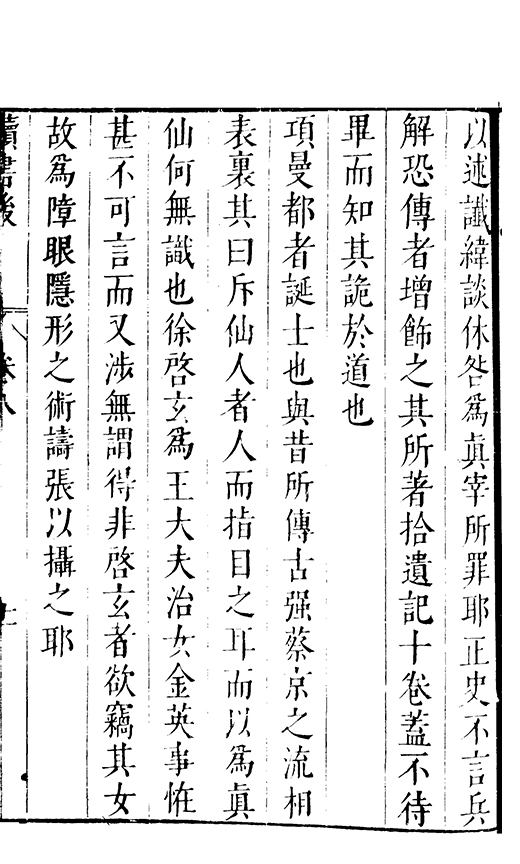 以述讖緯談休咎爲眞宰所罪耶正史不言兵
解恐傳者增飾之其所著拾遺記十卷蓋不待
畢而知其詭於道也
項曼都者誕士也與昔所傳古强蔡京之流相
表裏其曰斥仙人者人而指目之耳而以爲眞
仙何無識也徐啓玄爲王大夫治女金英事恠
甚不可言而又涉無謂得非啓玄者欲竊其女
故爲障眼隱形之術譸張以攝之耶
讀書後
卷八